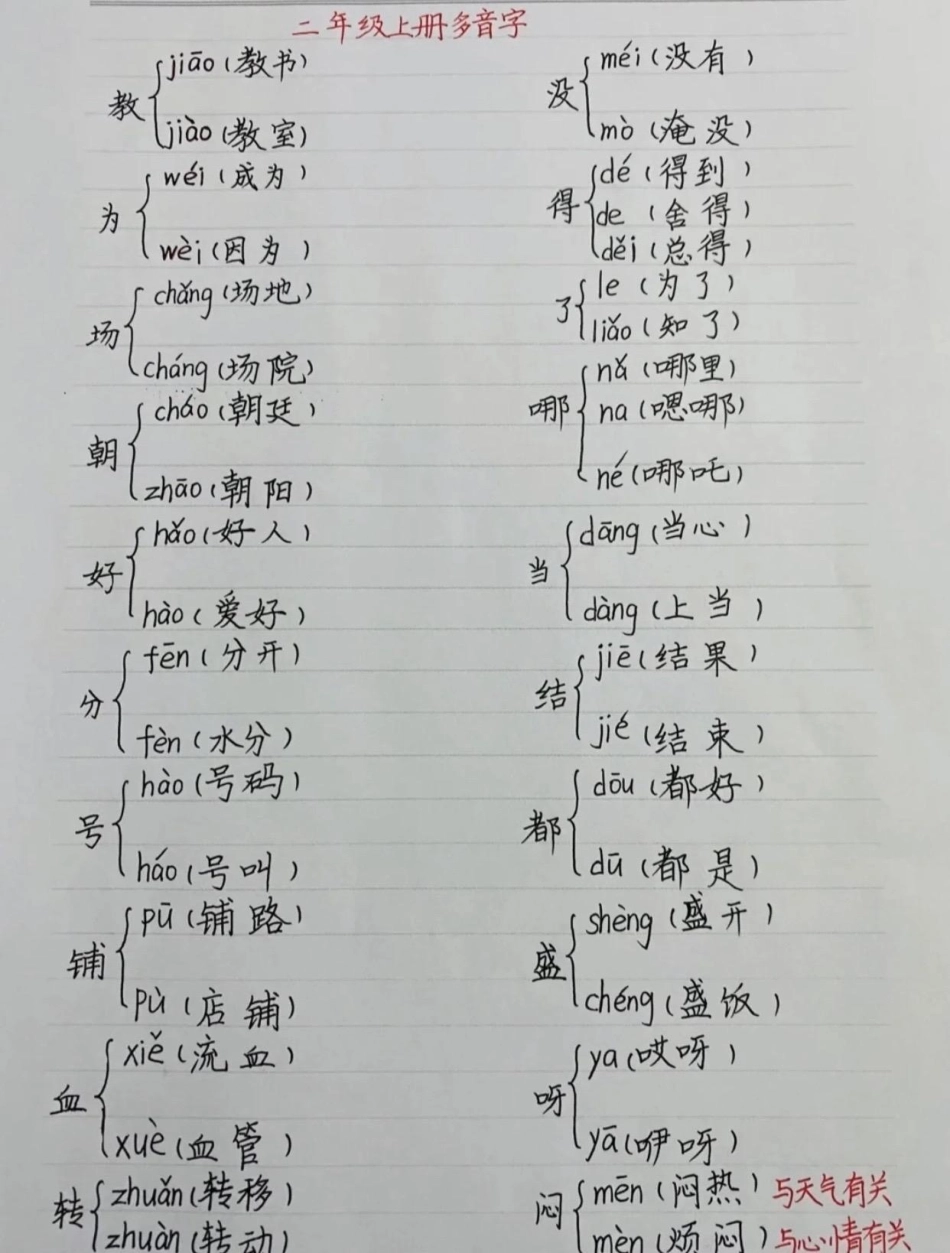 二年级上册多音字
教
jiāo（教书）
jiào（教室）
为
wéi（成为）
wèi（因为）
场
chǎng（场地）
cháng（场院）
朝
cháo（朝廷）
zhāo（朝阳）
好
hǎo（好人）
hào（爱好）
分
fēn（分开）
fèn（水分）
号
hào（号码）
háo（号叫）
铺
pū（铺路）
pù（店铺）
血
xiě（流血）
xuè（血管）
转
zhuǎn（转移）
zhuàn（转动）
没
méi（没有）
mò（淹没）
得
dé（得到）
de（舍得）
děi（总得）
了
le（为了）
liǎo（知了）
哪
nǎ（哪里）
na（嗯哪）
né（哪吒）
当
dāng（当心）
dàng（上当）
结
jiē（结果）
jié（结束）
都
dōu（都好）
dū（都是）
盛
shèng（盛开）
chéng（盛饭）
呀
ya（哎呀）
yā（咿呀）
闷
mēn（闷热）与天气有关
mèn（烦闷）与心情有关